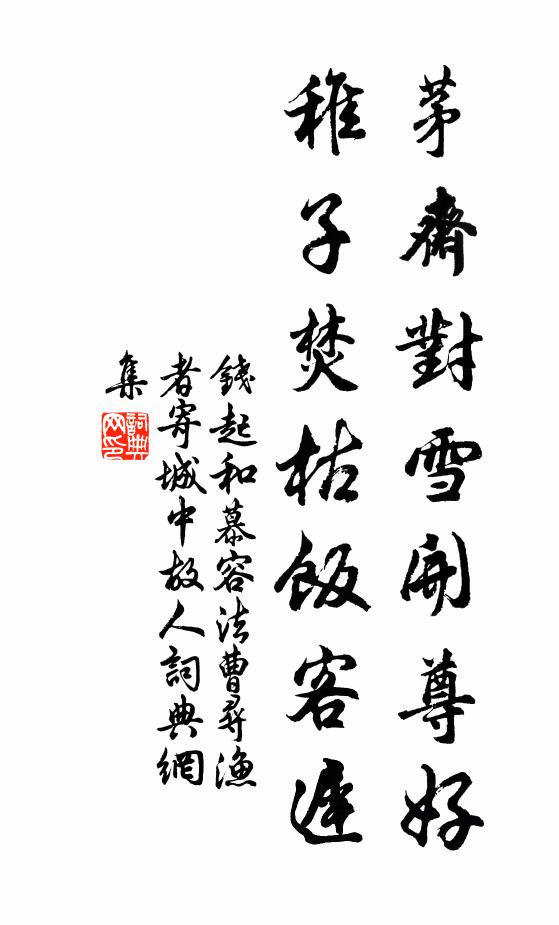 茅齋對雪開尊好
稚子焚枯飯客遲
錢起和慕容法曹尋漁
者寄城中故人詞典網
集
詞典
网印